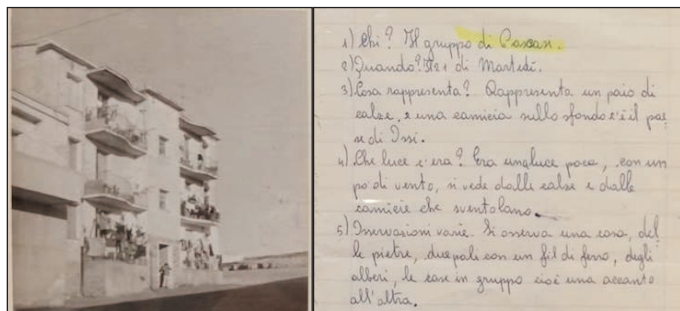 1) Chi? Il gruppo di Pascasi.
2) Quando? Il 21 di Martedì.
3) Cosa rappresenta? Rappresenta un paio di
calse, e una camicia sullo sfondo c'è il pae
se di Ossi.
4) Che luce c'era? Era una luce poca, con un
po' di vento, si vede dalle calse e dalle
camicie che sventolano.
5) Osservazioni varie. Si osserva una casa, del
le pietre, due pali con un fil di ferro, degli
alberi, le case in gruppo cioè una accanto
all'altra.